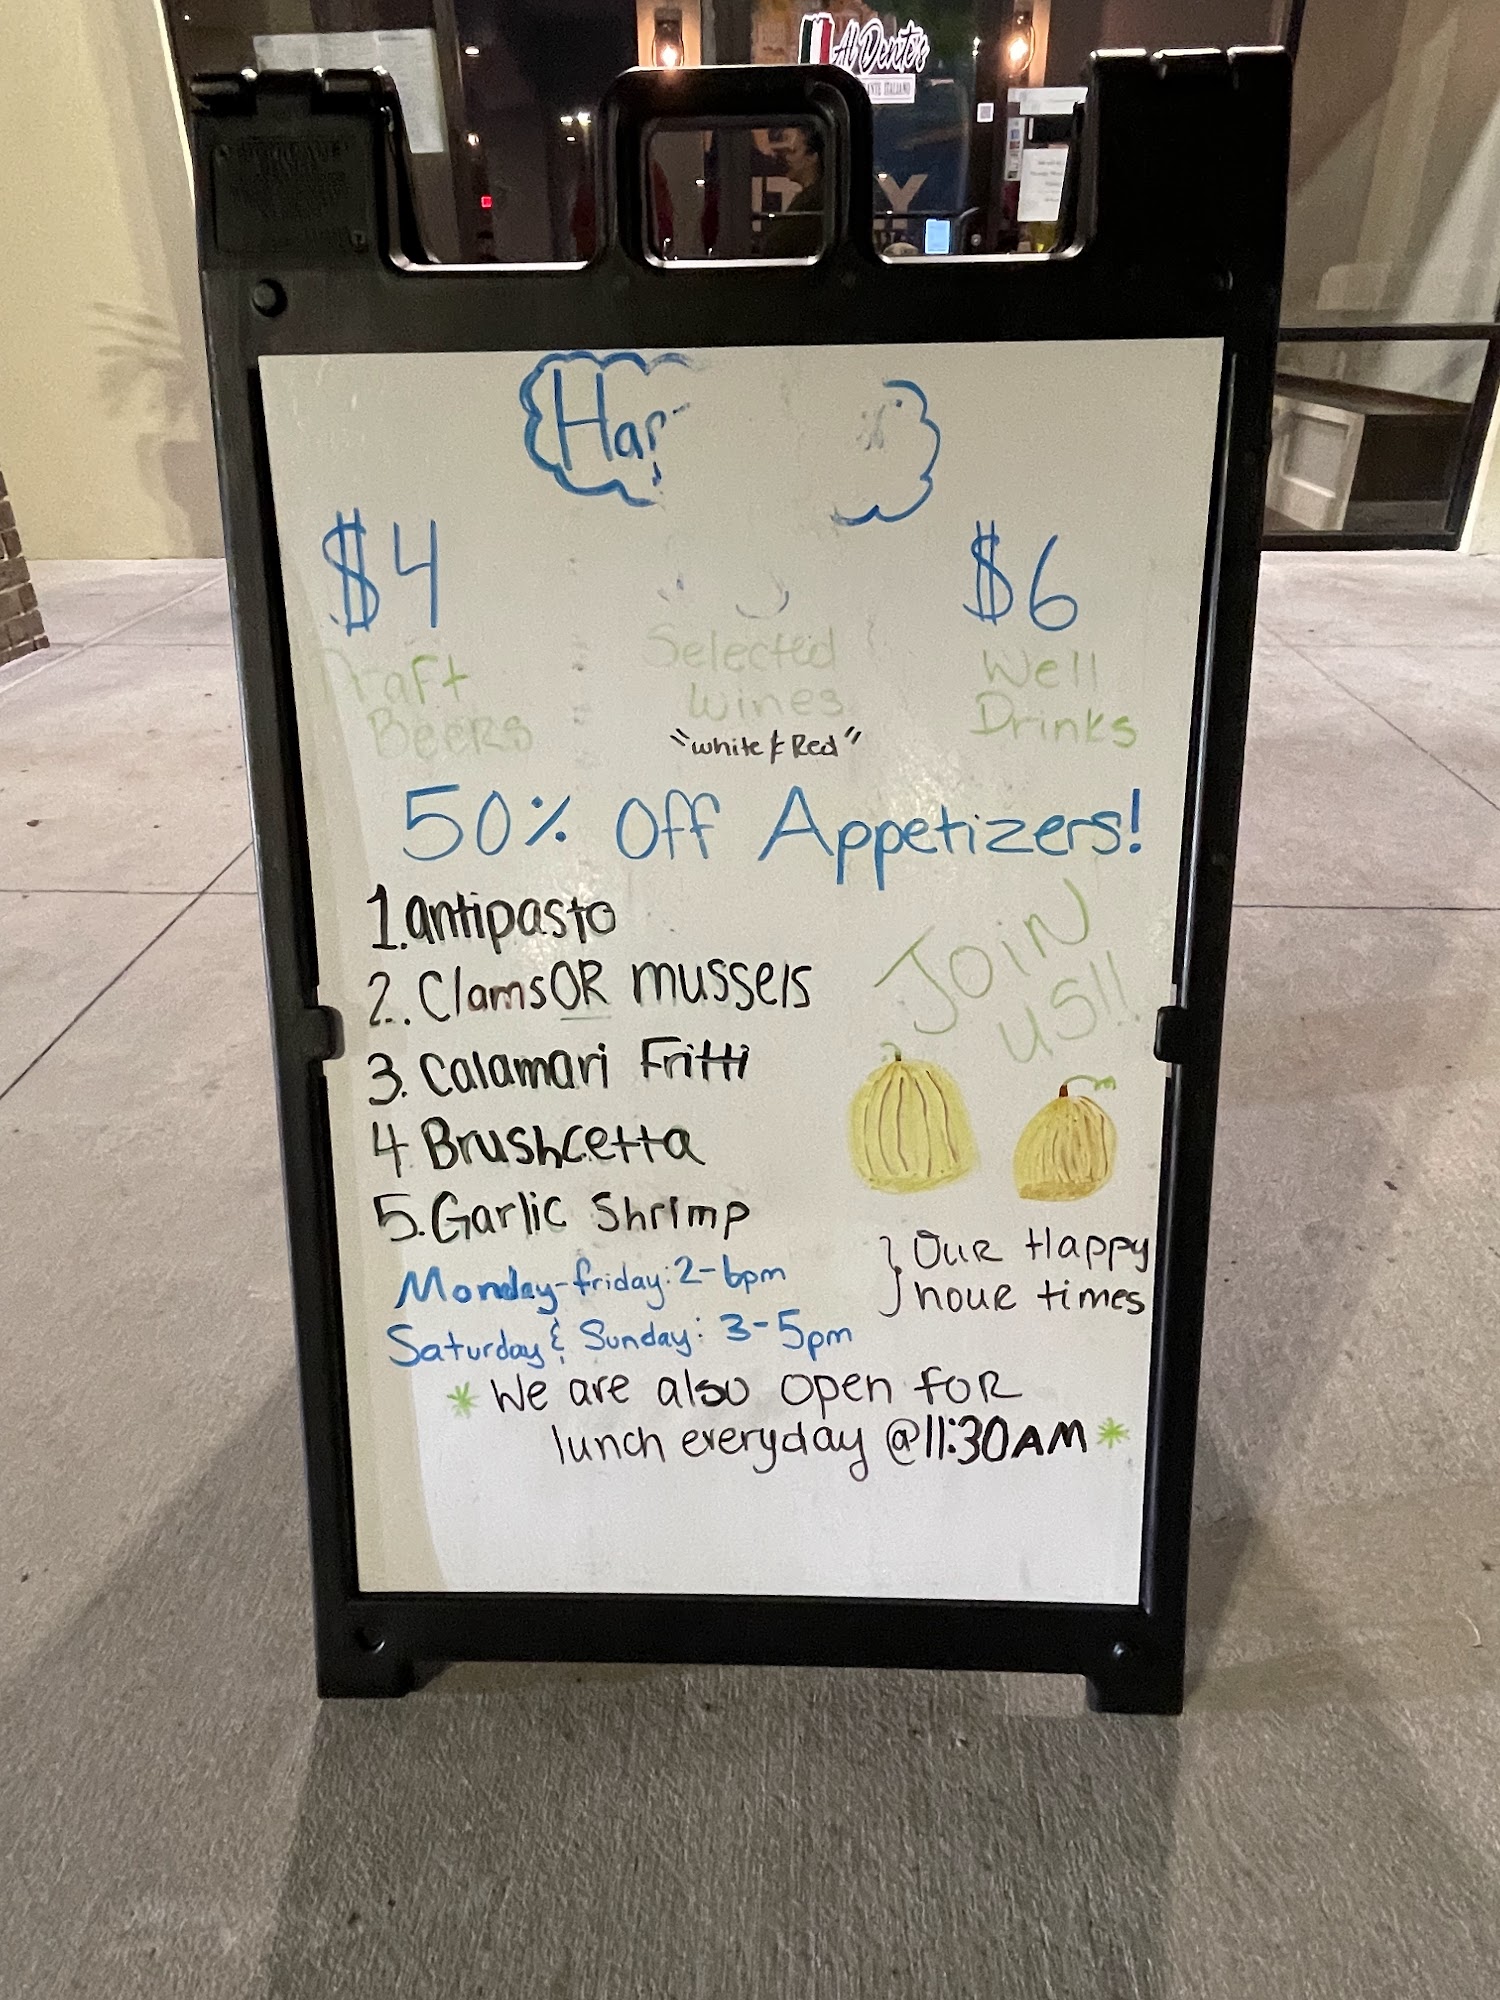 Al Dente's
Hap
$4
$6
Draft
Beers
Selected
Wines
"white & Red"
Well
Drinks
50% Off Appetizers!
1. antipasto
2. Clams OR mussels
3. Calamari Fritti
4. Brushcetta
5. Garlic Shrimp
JOIN
US!!
Monday-friday: 2-6pm
Saturday & Sunday: 3-5pm
} Our Happy
hour times
* We are also open for
lunch everyday @11:30AM *